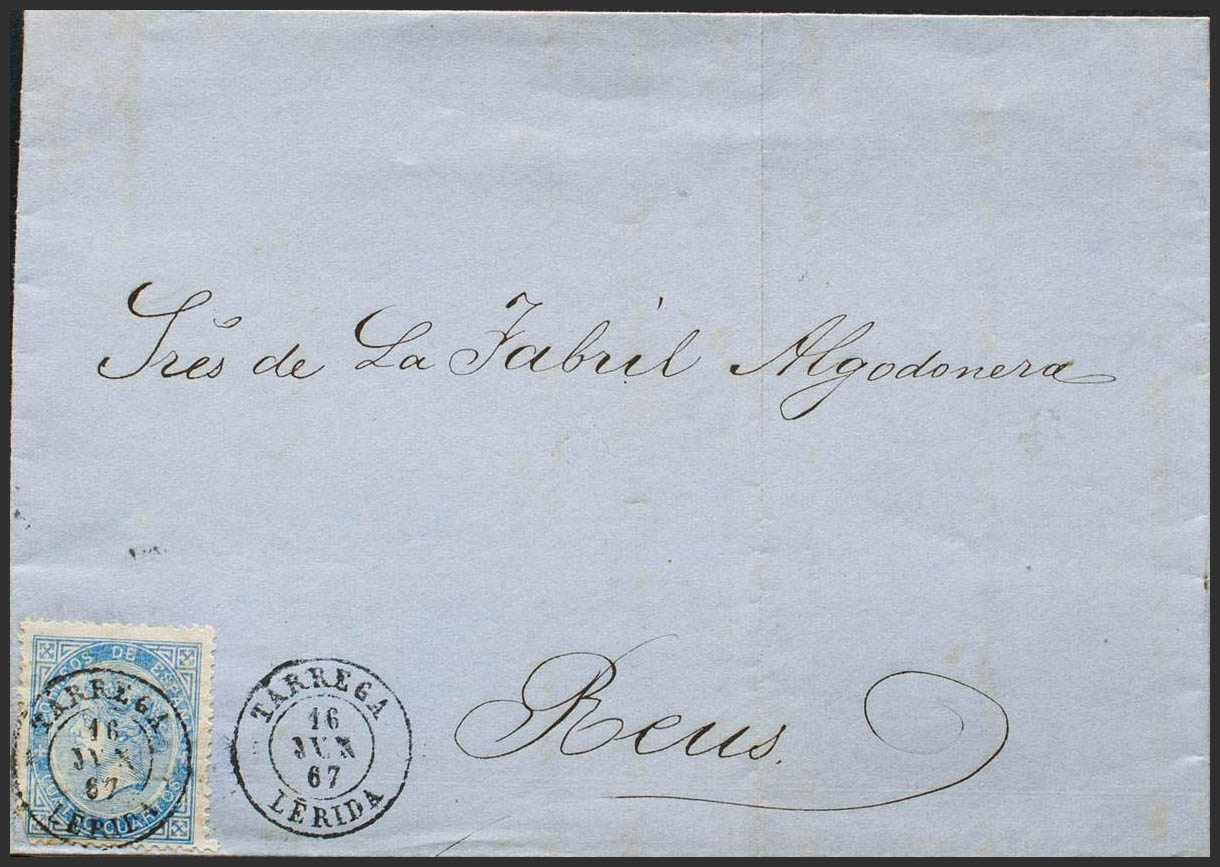 Sres de La Fabril Algodonera
Reus.
TÁRREGA
16
JUN
67
LÉRIDA
TARREGA
16
JUN
67
LERIDA
DE
CUARTOS